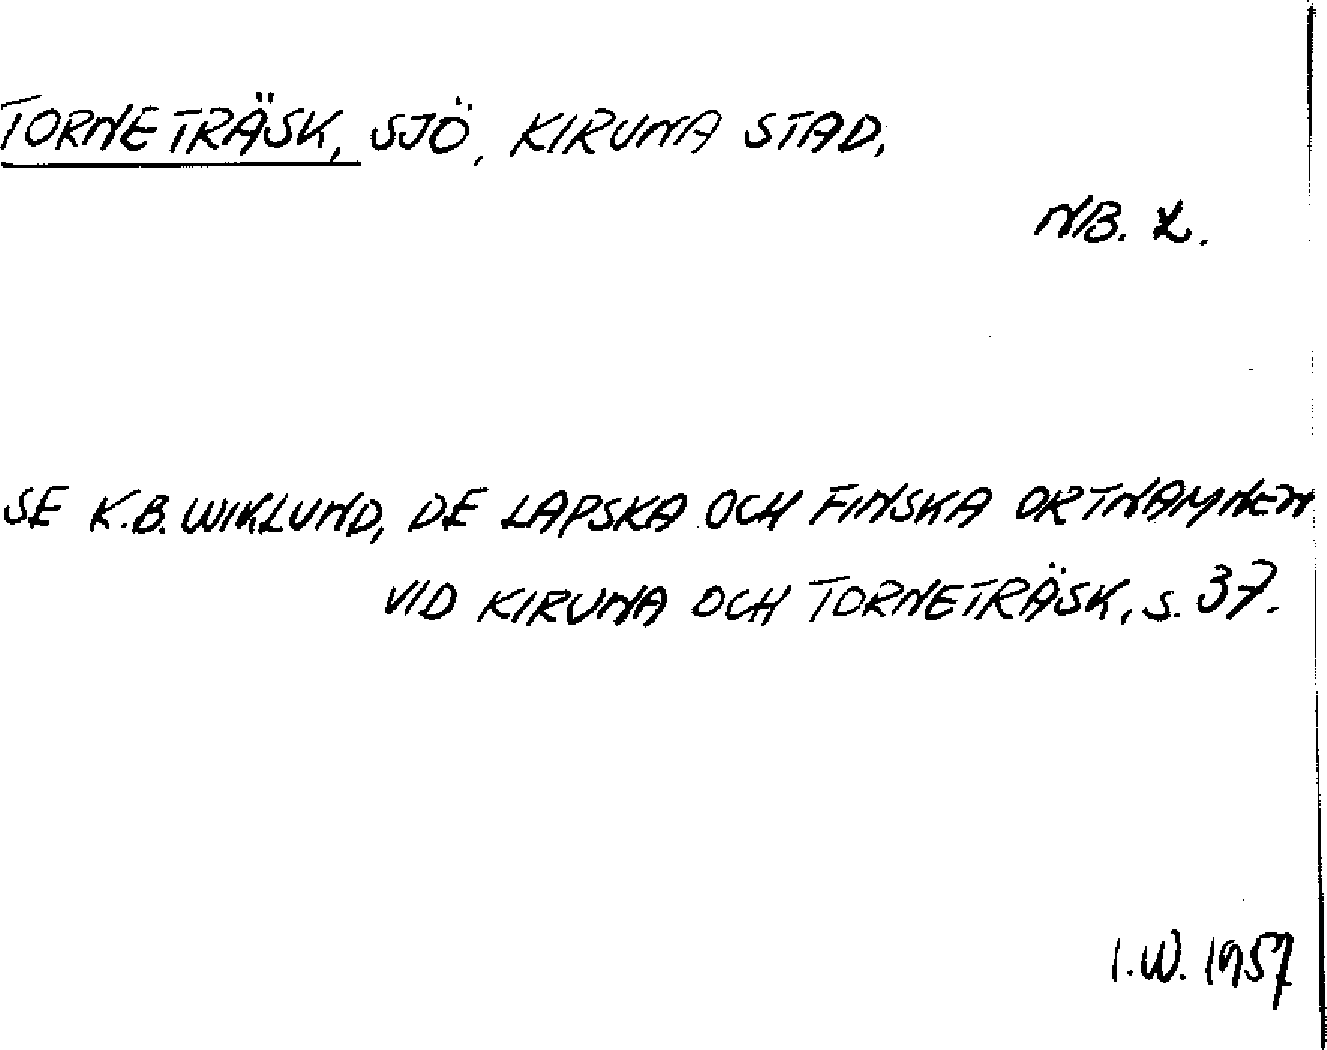 TORNETRÄSK, SJÖ, KIRUNA STAD,
NB. L.
SE K.B. WIKLUND, DE LAPSKA OCH FINSKA ORTNAMNEN
VID KIRUNA OCH TORNETRÄSK, s. 37.
I.W. 1957